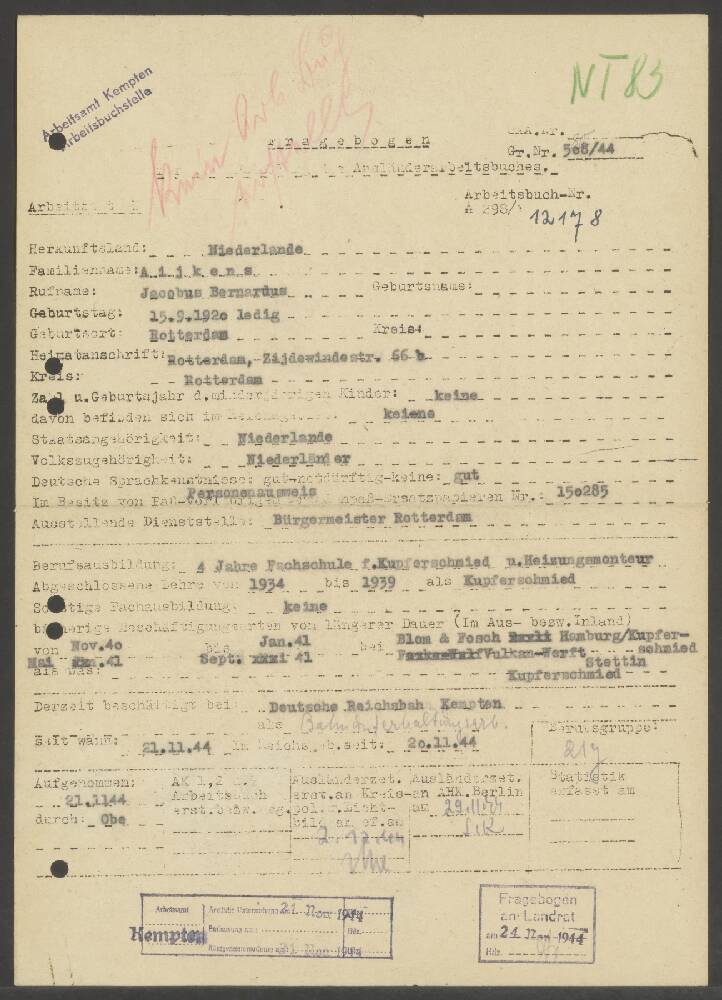 Arbeitsamt Kempten
Arbeitsbuchstelle
NT 83
Fragebogen
Gr.Nr. 568/44
Ausländerarbeitsbuches.
Arbeitsbuch-Nr.
A 298/ 12178
Herkunftsland: Niederlande
Familienname: Aijkens
Rufname: Jacobus Bernardus Geburtsname:
Geburtstag: 15.9.192o ledig
Geburtsort: Rotterdam Kreis:
Heimatanschrift: Rotterdam, Zijdewindestr. 66 b
Kreis: Rotterdam
Zahl u.Geburtsjahr d.minderjährigen Kinder: keine
davon befinden sich im keiene
Staatsangehörigkeit: Niederlande
Volkszugehörigkeit: Niederländer
Deutsche Sprachkenntnisse: gut-notdürftig-keine: gut
Personenausweis
Im Besitz von Paß-ersatzpapieren Nr.: 15o285
Ausstellende Dienststelle: Bürgermeister Rotterdam
Berufsausbildung: 4 Jahre Fachschule f.Kupferschmied u.Heizungsmonteur
Abgeschlossene Lehre von 1934 bis 1939 als Kupferschmied
Sonstige Fachausbildung: keine
bisherige Beschäftigungsarten von längerer Dauer (Im Aus- bezw.Inland)
von Nov.4o bis Jan.41 bei Blom & Fosch Hamburg/Kupfer-
Mai 41 Sept. 41 Vulkan-Werft schmied
Stettin
als was: Kupferschmied
Derzeit beschäftigt bei Deutsche Reichsbah Kempten
als Bahnunterhaltungsarb.
Berufsgruppe:
seit wann: 21.11.44 im Reichsgeb.seit: 2o.11.44
Aufgenommen: AK 1,2 Ausländerzet. Ausländerzet. Statistik
21.1144 Arbeitsbuch erst.an Kreis- an AHK.Berlin erfasst am
durch: Obe erst.bezw. pol. Licht- am 29.11.44
bild
Arbeitsamt Ärztliche Untersuchung am 21. Nov. 1944
Kempten
21 Nov 1944
Fragebogen
an Landrat
am 21 Nov 1944
Hdz.